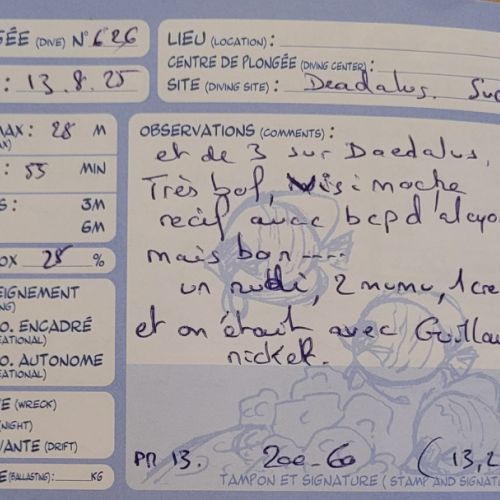 ÉE (DIVE) N° 626
LIEU (LOCATION) :
CENTRE DE PLONGÉE (DIVING CENTER) :
: 13.8.25
SITE (DIVING SITE) : Deadalus. Sud
MAX : 28 M
: 55 MIN
S : 3M
6M
OX 28 %
EIGNEMENT
O. ENCADRÉ
O. AUTONOME
E (WRECK)
(NIGHT)
VANTE (DRIFT)
E (BALLASTING) : KG
OBSERVATIONS (COMMENTS) :
et de 3 sur Daedalus,
Très bof, Visi moche
recif avec bcp d'alcyo
mais bon ....
un nudi, 2 mumu, 1 cre
et on était avec Guillau
nickel.
PM 13. 200-60 (13,2
TAMPON ET SIGNATURE (STAMP AND SIGNAT